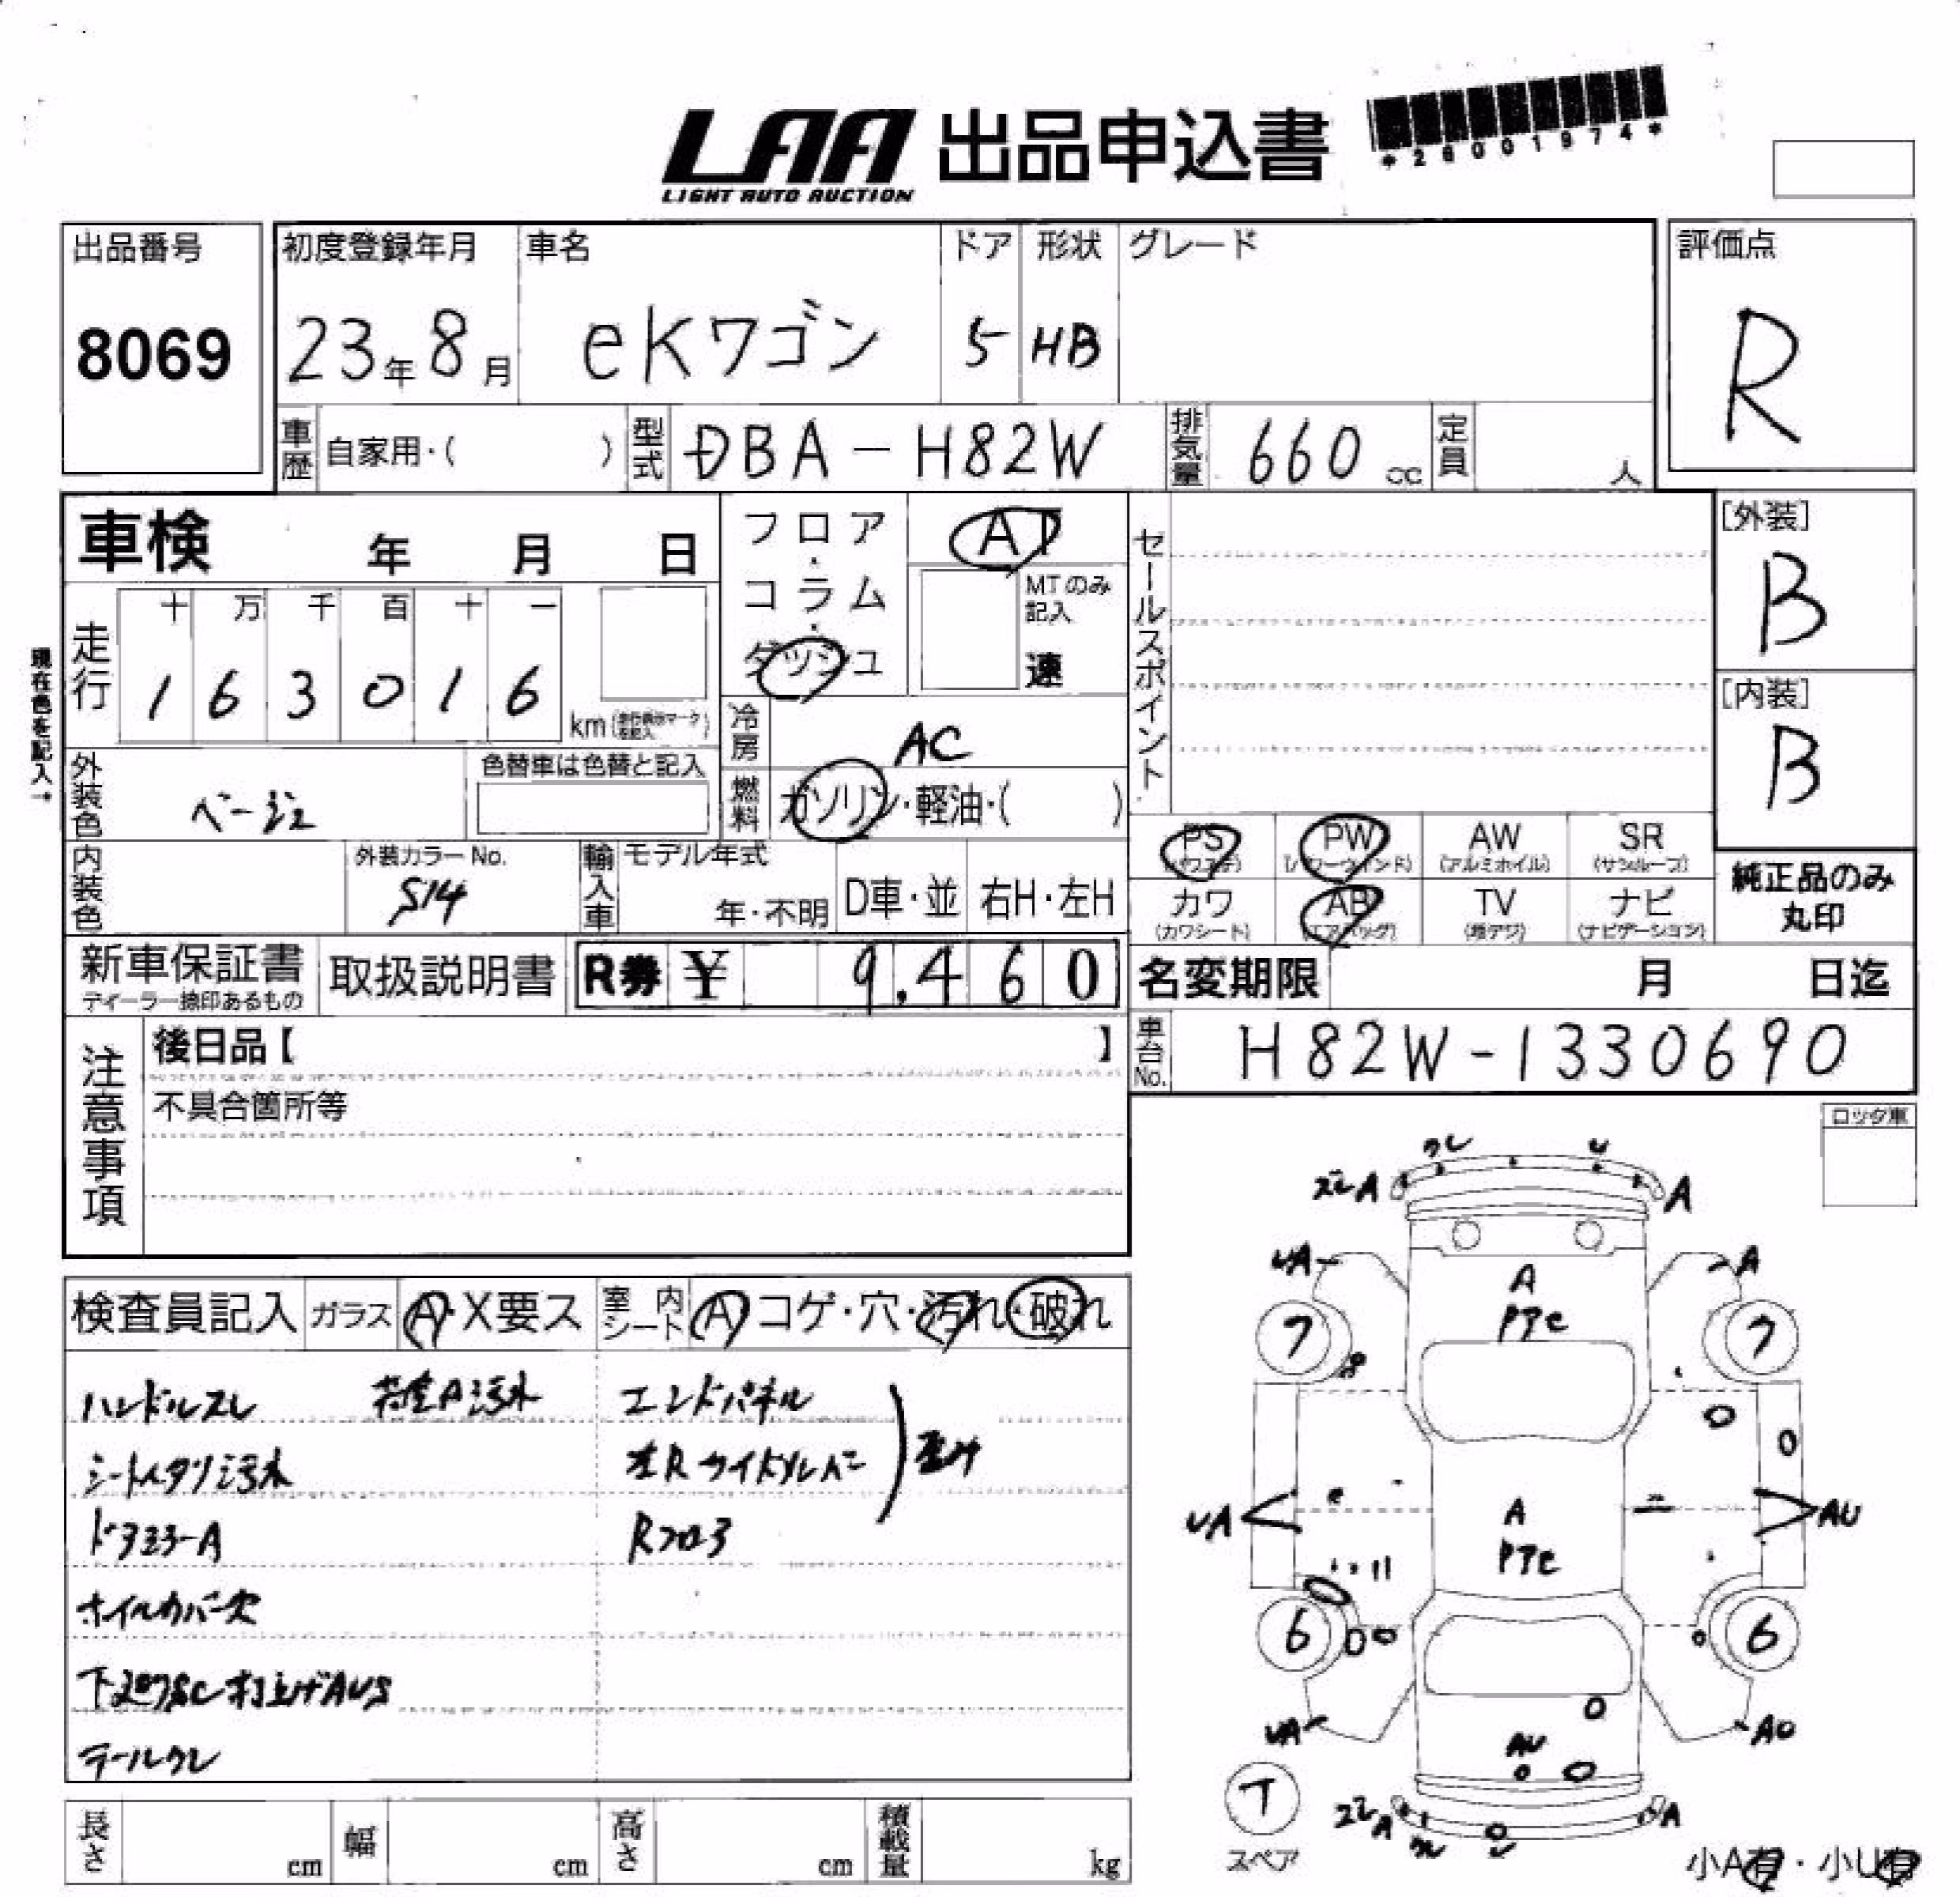 LAA 出品申込書
LIGHT AUTO AUCTION
*26001974*
出品番号 初度登録年月 車名 ドア 形状 グレード 評価点
8069 23年8月 eKワゴン 5 HB R
車歴 自家用・( ) 型式 DBA-H82W 排気量 660cc 定員 人
車検 年 月 日 フロア・コラム・ダッシュ AT セールスポイント [外装]
B
MTのみ記入 速
現在色を記入→
走行 十 万 千 百 十 一
1 6 3 0 1 6 km
[内装]
B
冷房 AC
外装色 ベージュ 色替車は色替と記入 燃料 ガソリン・軽油・( )
PS PW AW SR
(パワステ) (パワーウィンド) (アルミホイル) (サンルーフ)
内装色 外装カラーNo. S14 輸入車 モデル年式 年・不明 D車・並 右H・左H
カワ AB TV ナビ
(カワシート) (エアバッグ) (ナビゲーション)
純正品のみ
丸印
新車保証書 取扱説明書 R券 ¥ 9,460 名変期限 月 日迄
ディーラー捺印あるもの
車台No. H82W-1330690
注意事項 後日品【 】
不具合箇所等
ロック車
検査員記入 ガラス A・X要ス 室内シート A コゲ・穴・汚れ・破れ
ハンドルスレ 荷室A汚れ エンドパネル
シートヘタリ汚れ
ドアミラーA Rフロア
ホイルカバー欠
テールワレ
ワレ U
スレA A
UA A
A
PTe
7 7
UA A AU
PTe
6 6
UA AU AO
T
スペア
スレA ワレ U A
小A有・小U有
長さ cm 幅 cm 高さ cm 積載量 kg